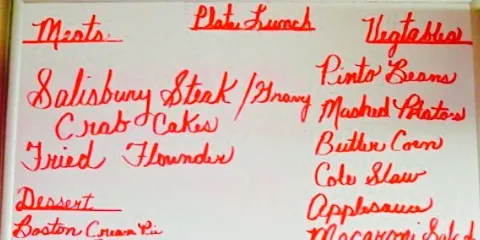 Plate Lunch
Meats
Salisbury Steak / Gravy
Crab Cakes
Fried Flounder
Dessert
Boston Cream Pie
Vegtables
Pinto Beans
Mashed Potatoes
Butter Corn
Cole Slaw
Applesauce
Macaroni Salad